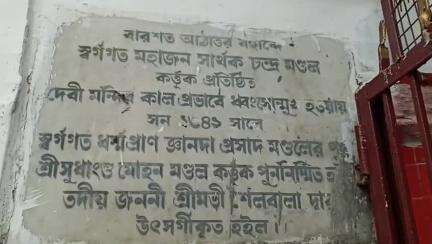 বারশত আঠাত্তর বঙ্গাব্দে
স্বর্গগত মহাজন সার্থক চন্দ্র মণ্ডল
কর্তৃক প্রতিষ্ঠিত
দেবী মন্দির কাল প্রভাবে ধ্বংসোন্মুখ হওয়ায়
সন ১৮৪৯ সালে
স্বর্গগত ধর্ম্মপ্রাণ জ্ঞানদা প্রসাদ মণ্ডলের পুত্র
শ্রীসুধাংশু মোহন মণ্ডল কর্তৃক পুনর্নির্ম্মিত
তদীয় জননী শ্রীমতী শৈলবালা
উৎসর্গীকৃত হইল।।